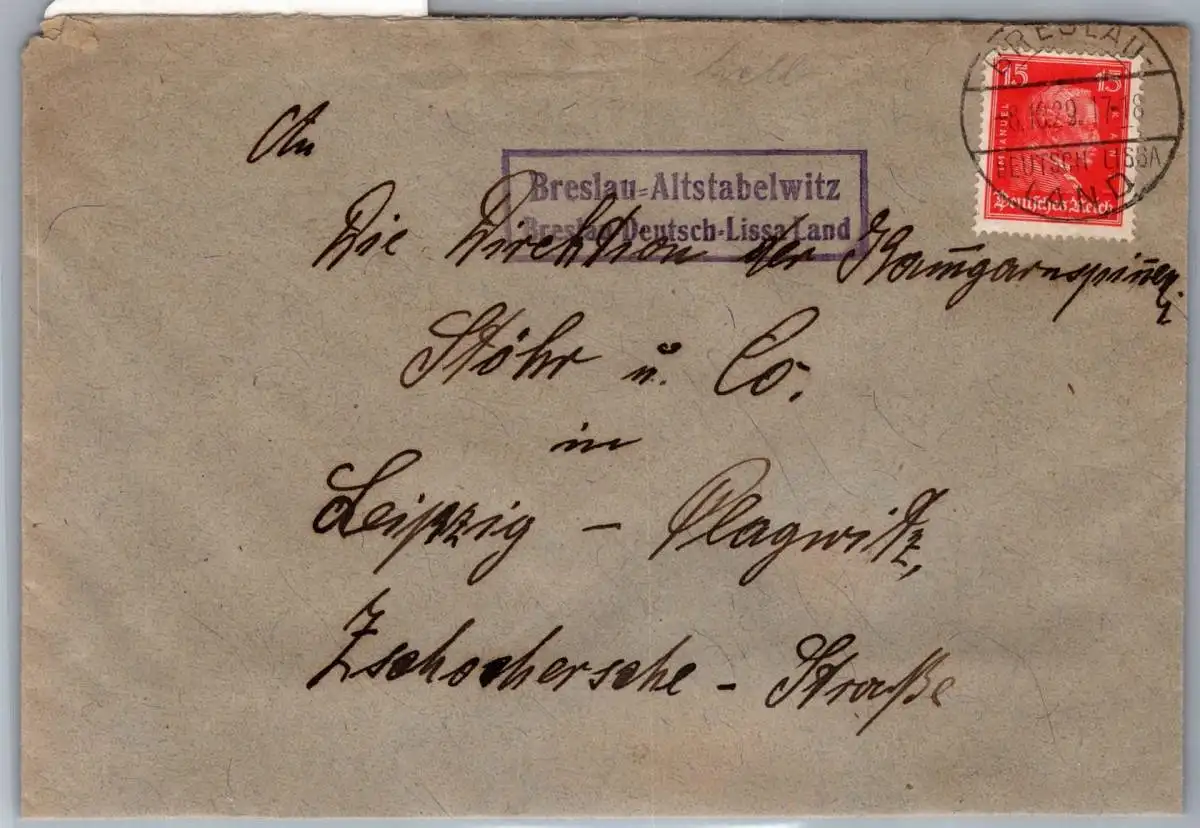 BRESLAU-
8.10.29.17-18
DEUTSCH LISSA
LAND
15 15
IMMANUEL KANT
Deutsches Reich
Breslau-Altstabelwitz
Breslau Deutsch-Lissa Land
An
Die Direktion der Kam̅garnspin̅er.
Stöhr u. Co.
in
Leipzig - Plagwitz,
Zschochersche - Straße